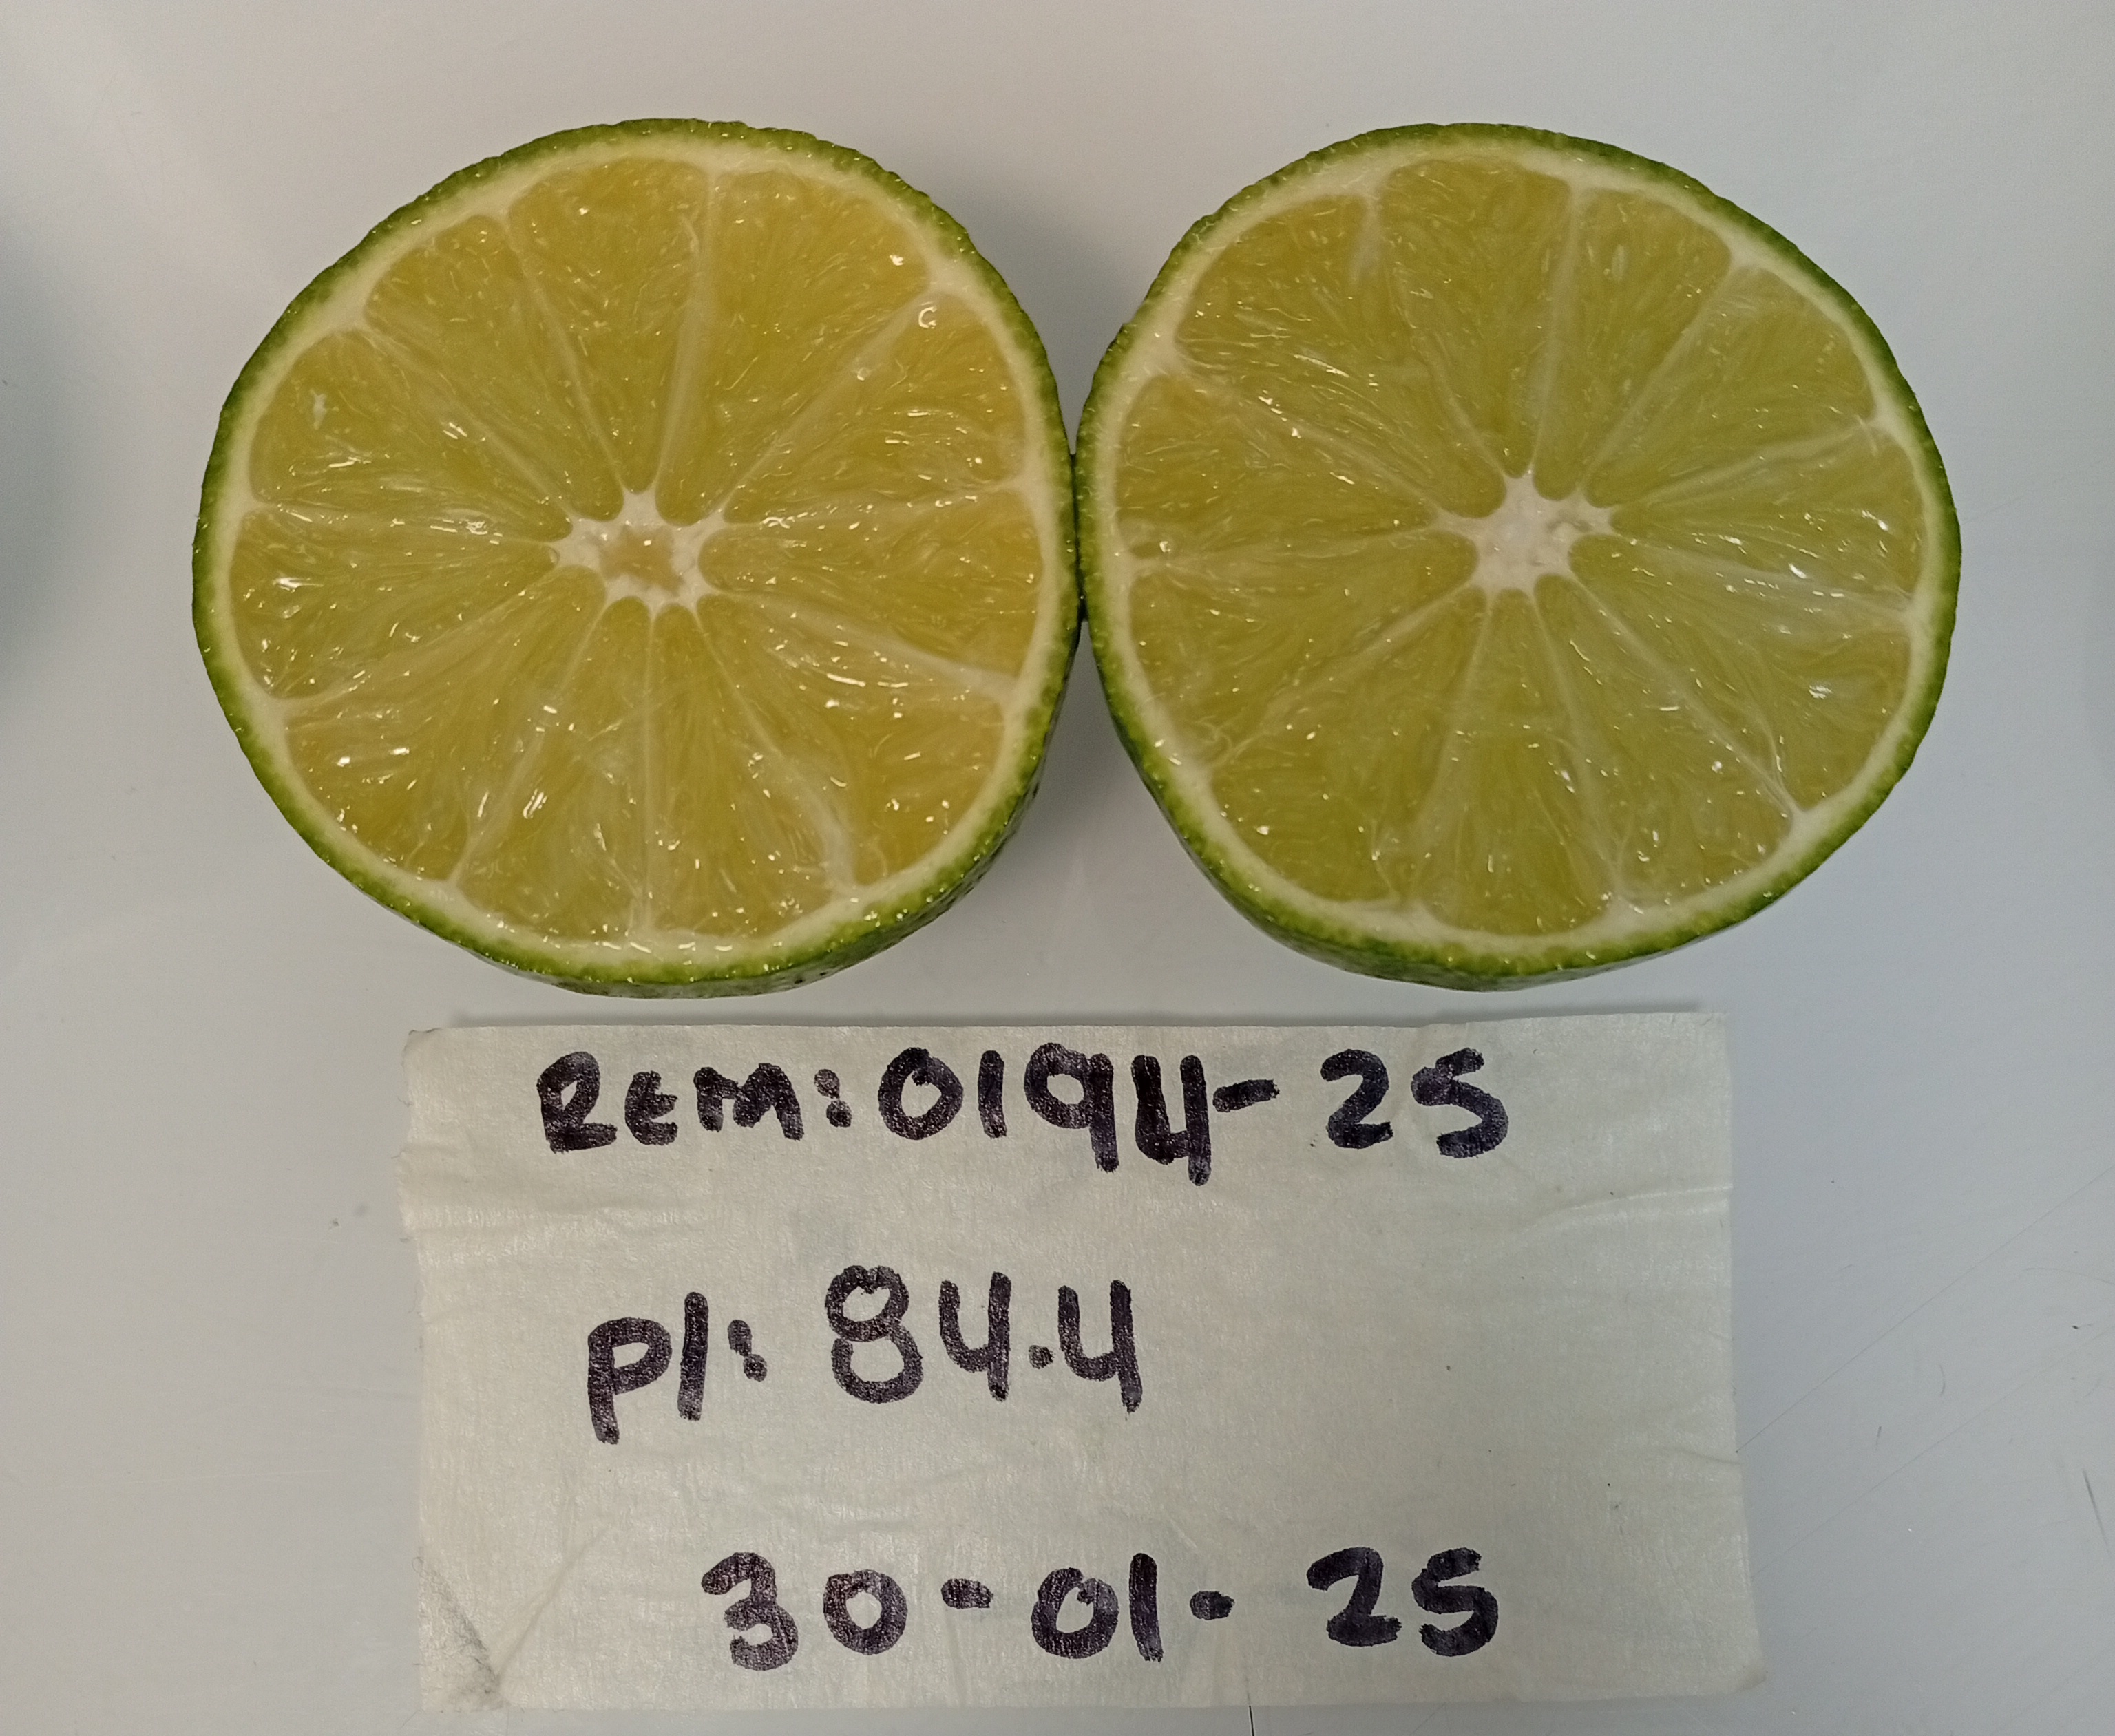 REM: 0194-25
Pl: 84.4
30-01-25